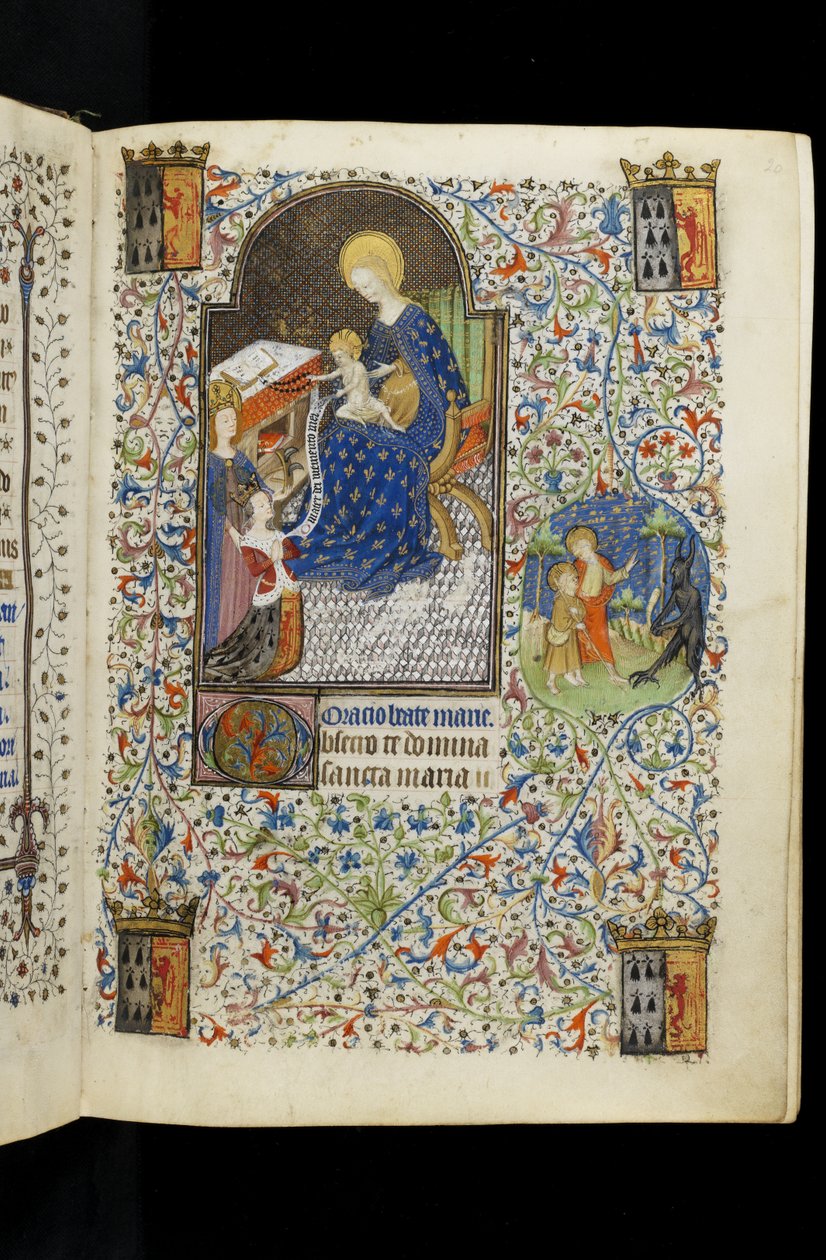 20
O mater dei memento mei
Oracio beate marie.
Obsecro te domina
sancta maria